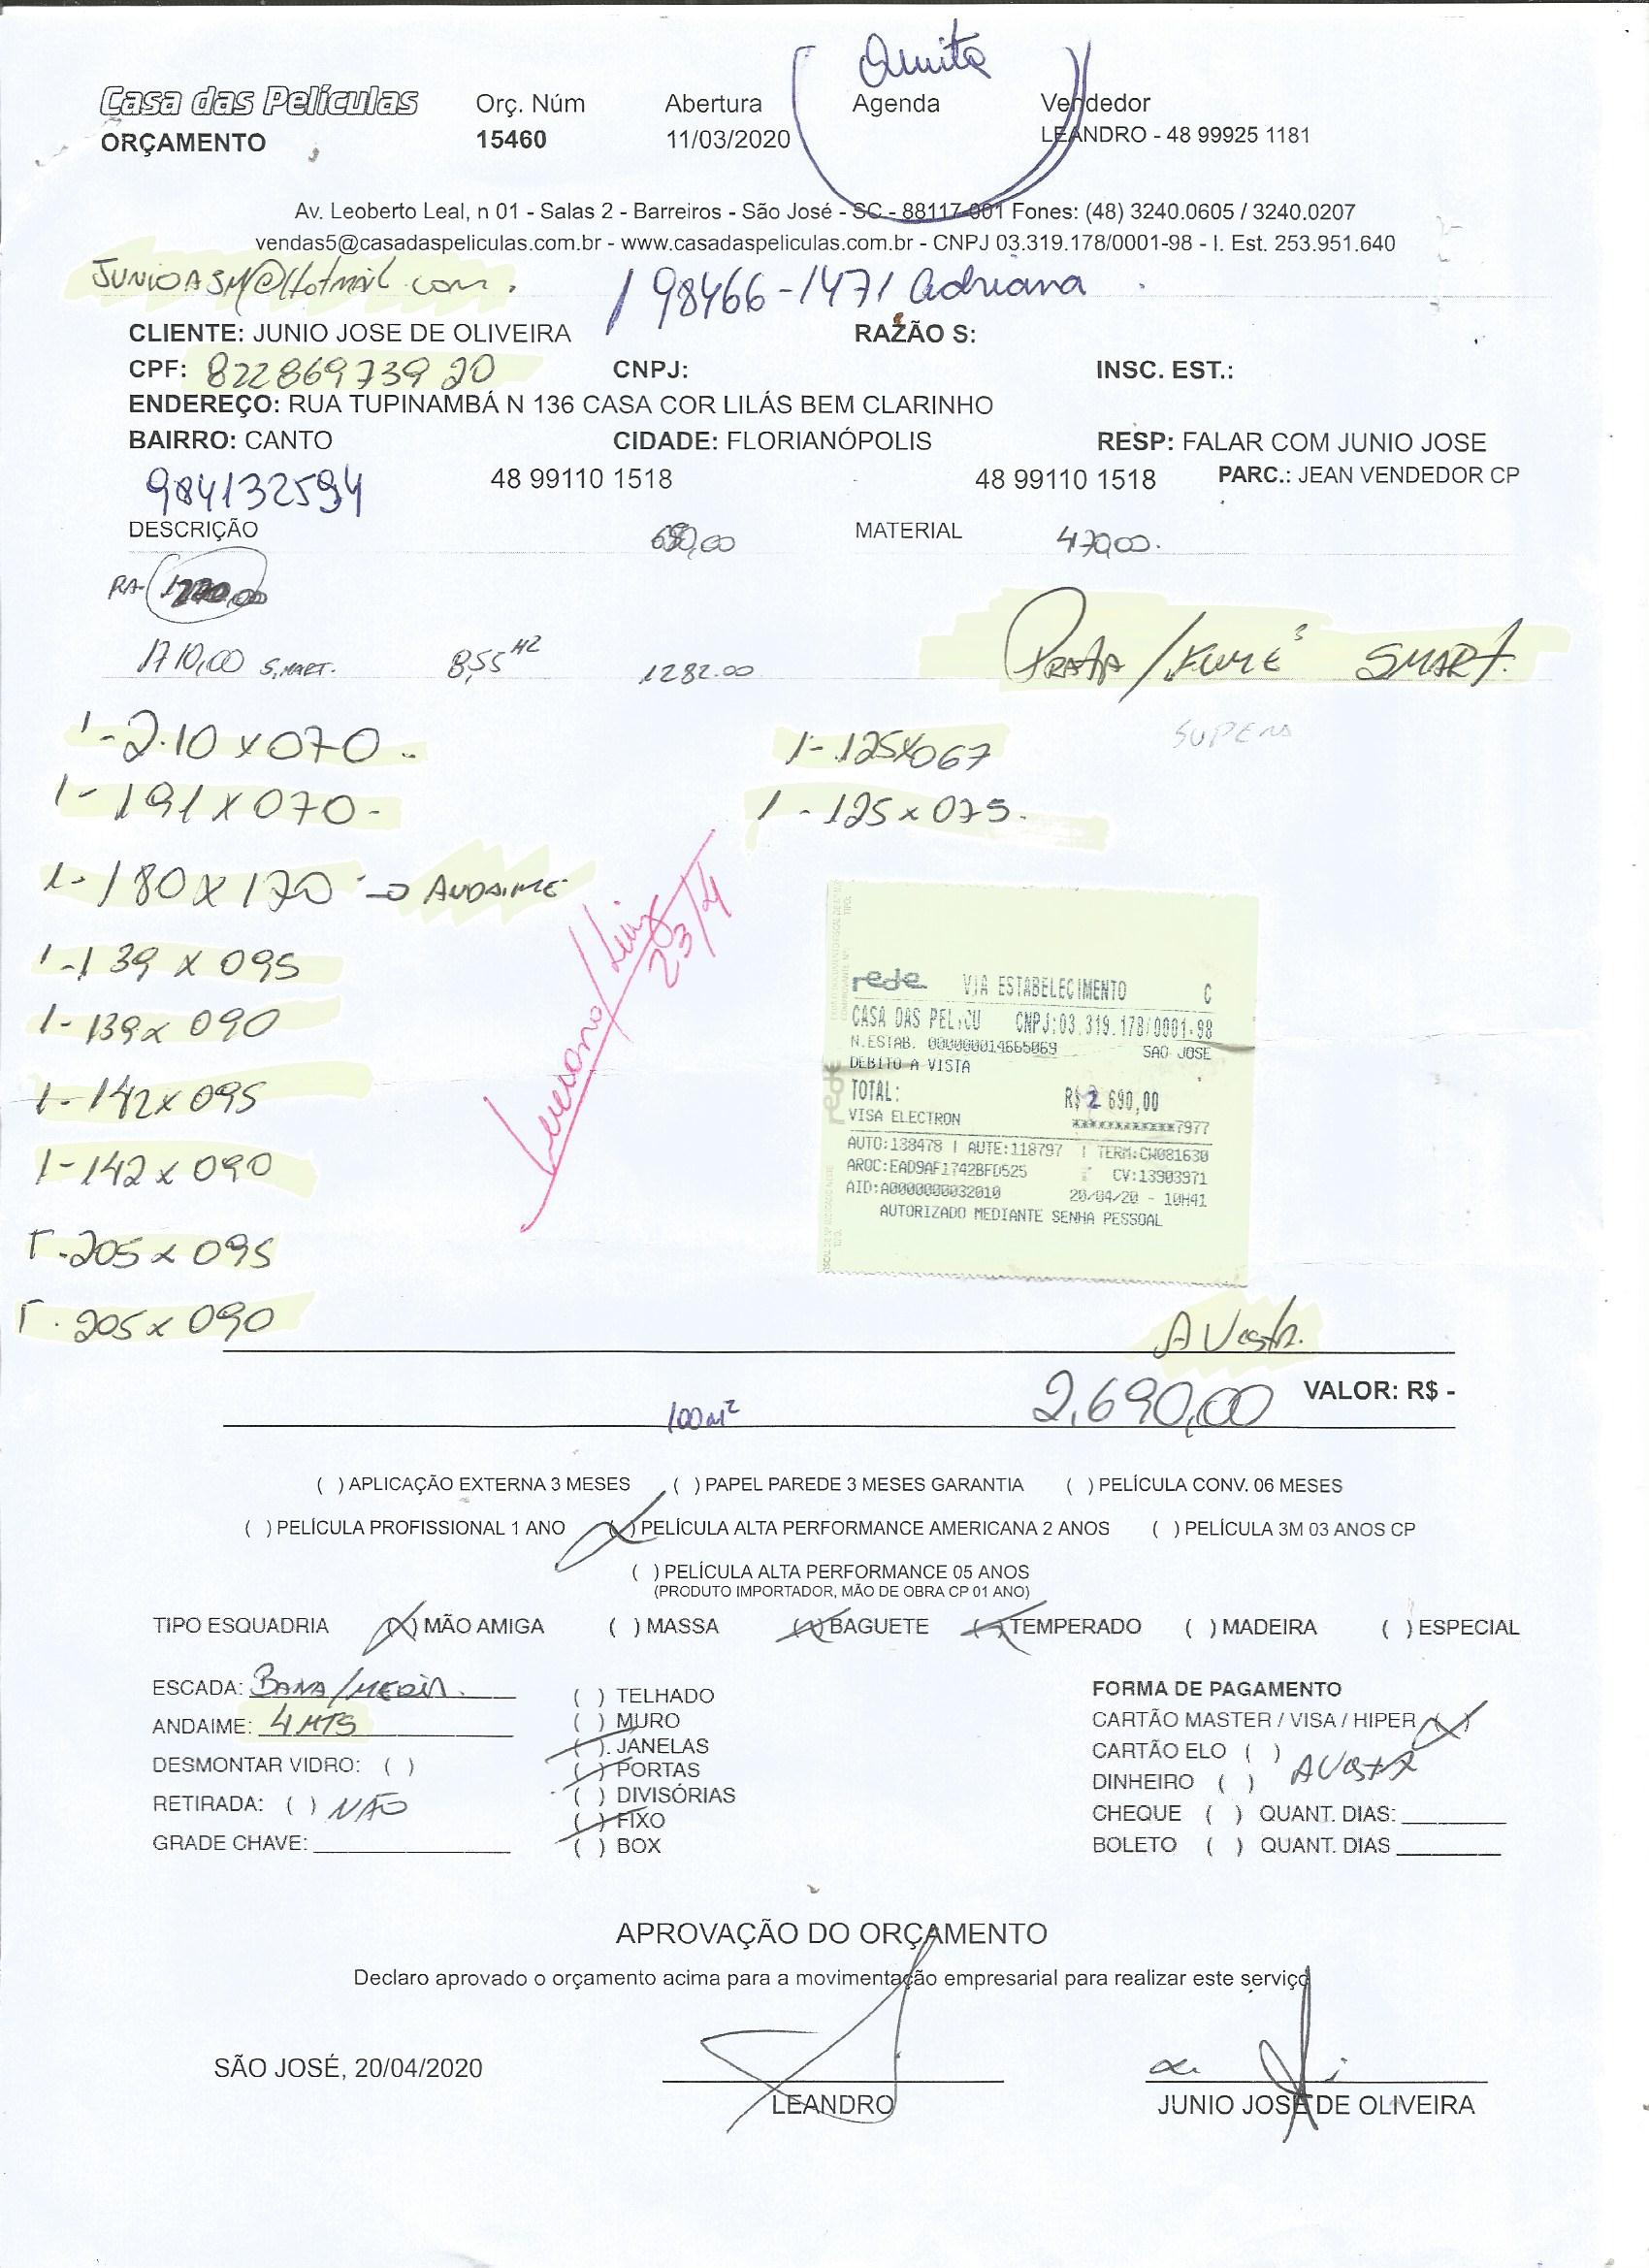 Quita
Casa das Películas Orç. Núm Abertura Agenda Vendedor
ORÇAMENTO 15460 11/03/2020 LEANDRO - 48 99925 1181
Av. Leoberto Leal, n 01 - Salas 2 - Barreiros - São José - SC - 88117-001 Fones: (48) 3240.0605 / 3240.0207
vendas5@casadaspeliculas.com.br - www.casadaspeliculas.com.br - CNPJ 03.319.178/0001-98 - I. Est. 253.951.640
JUNIOASM@Hotmail com. / 98466-1471 Adriana
CLIENTE: JUNIO JOSE DE OLIVEIRA RAZÃO S:
CPF: 822869739 20 CNPJ: INSC. EST.:
ENDEREÇO: RUA TUPINAMBÁ N 136 CASA COR LILÁS BEM CLARINHO
BAIRRO: CANTO CIDADE: FLORIANÓPOLIS RESP: FALAR COM JUNIO JOSE
984132594 48 99110 1518 48 99110 1518 PARC.: JEAN VENDEDOR CP
DESCRIÇÃO MATERIAL 470,00.
RA-
1710,00 SMART. 8,55 M2 1282.00 PRATA / FUMÊ SMART.
SUPER
1-2.10 x 070 - 1-125x067
1-191 x 070 - 1-125 x 075.
1-180 x 170 → ANDAIME
1-139 x 095
1-139x 090
1-142x 095
1-142 x 090
1-205 x 095
1-205 x 090
Luciano/Luiz
23/4
rede VIA ESTABELECIMENTO C
CASA DAS PELICU CNPJ:03.319.178/0001-98
N.ESTAB. 000000014665069 SAO JOSE
DEBITO A VISTA
TOTAL: R$ 2 690,00
VISA ELECTRON ************7977
AUTO:138478 | AUTE:118797 | TERM:CW081630
AROC:EAD9AF1742BFD525 CV:13903971
AID:A0000000032010 20/04/20 - 10H41
AUTORIZADO MEDIANTE SENHA PESSOAL
A Vista.
2.690,00 VALOR: R$ -
100m²
( ) APLICAÇÃO EXTERNA 3 MESES ( ) PAPEL PAREDE 3 MESES GARANTIA ( ) PELÍCULA CONV. 06 MESES
( ) PELÍCULA PROFISSIONAL 1 ANO (X) PELÍCULA ALTA PERFORMANCE AMERICANA 2 ANOS ( ) PELÍCULA 3M 03 ANOS CP
( ) PELÍCULA ALTA PERFORMANCE 05 ANOS
(PRODUTO IMPORTADOR, MÃO DE OBRA CP 01 ANO)
TIPO ESQUADRIA (X) MÃO AMIGA ( ) MASSA (X) BAGUETE (X) TEMPERADO ( ) MADEIRA ( ) ESPECIAL
ESCADA: BAIXA/MEDIA.
ANDAIME: 4 MTS
DESMONTAR VIDRO: ( )
RETIRADA: ( ) NÃO
GRADE CHAVE:
( ) TELHADO
( ) MURO
(X). JANELAS
(X) PORTAS
( ) DIVISÓRIAS
(X) FIXO
( ) BOX
FORMA DE PAGAMENTO
CARTÃO MASTER / VISA / HIPER (X)
CARTÃO ELO ( ) A VISTA
DINHEIRO ( )
CHEQUE ( ) QUANT. DIAS:
BOLETO ( ) QUANT. DIAS
APROVAÇÃO DO ORÇAMENTO
Declaro aprovado o orçamento acima para a movimentação empresarial para realizar este serviço
SÃO JOSÉ, 20/04/2020
LEANDRO JUNIO JOSE DE OLIVEIRA